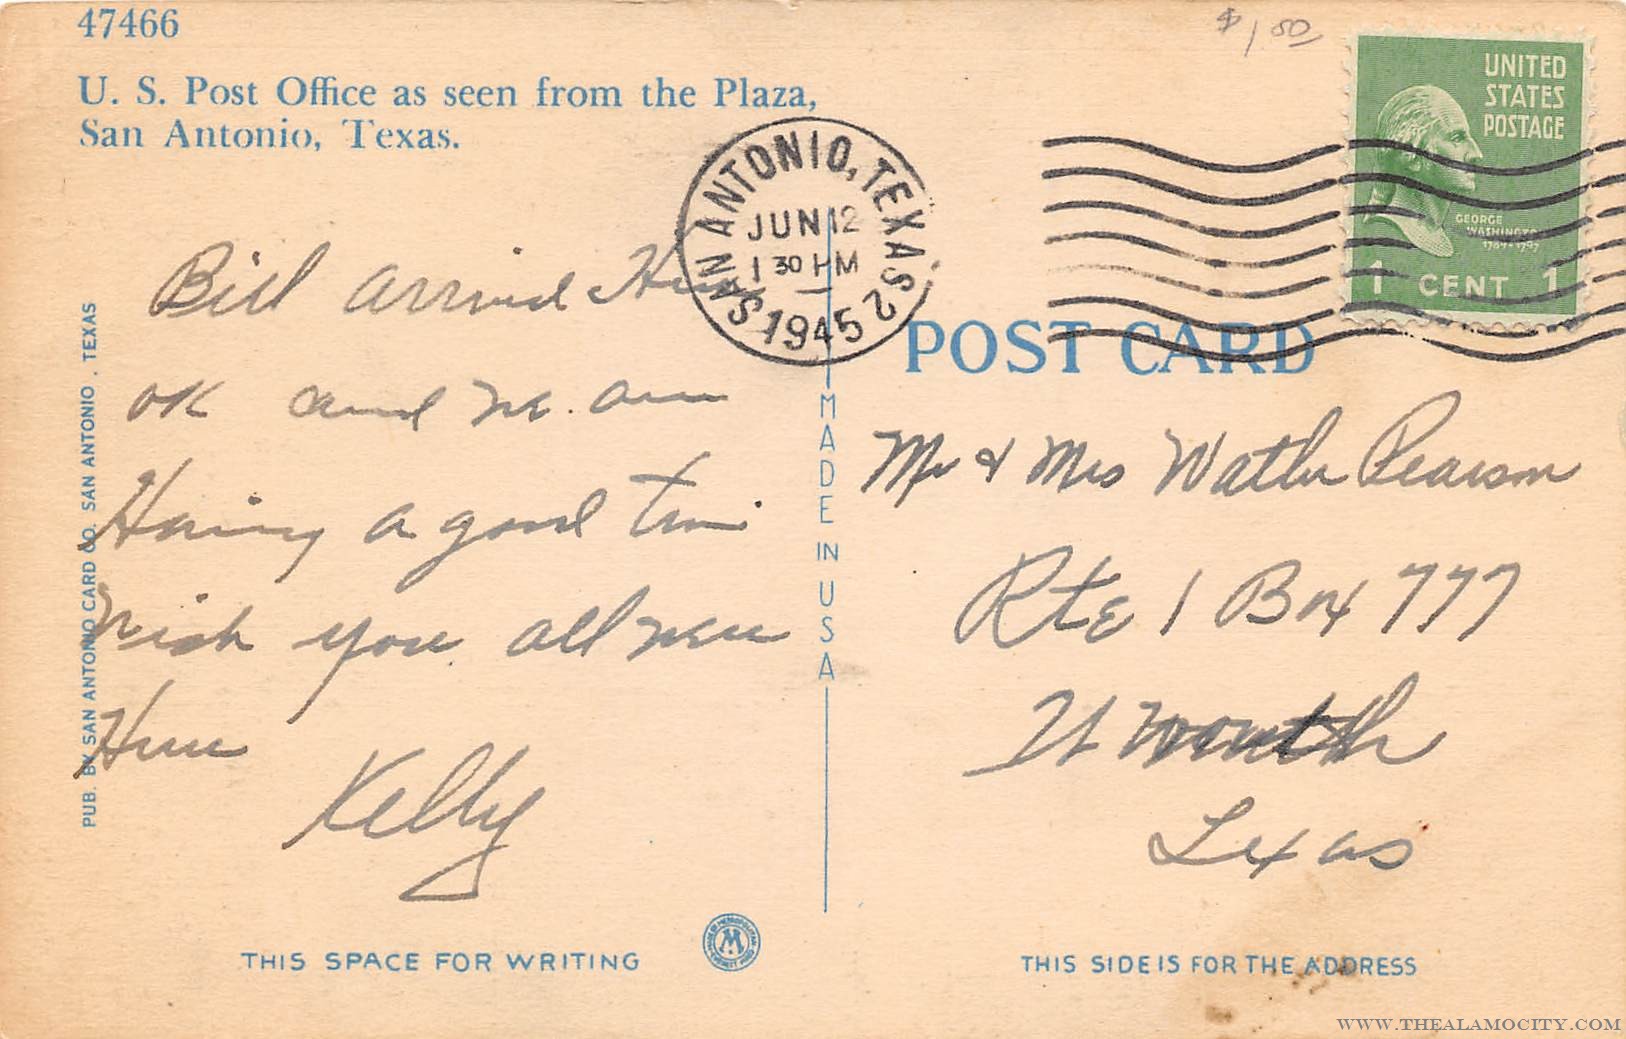 47466
$1.50
U. S. Post Office as seen from the Plaza,
San Antonio, Texas.
SAN ANTONIO, TEXAS 2
JUN 12
1 30 PM
1945
UNITED
STATES
POSTAGE
GEORGE
WASHINGTON
1789-1797
1 CENT 1
Bill arrived Here
OK and we are
Having a good time
Wish you all were
Here
Kelly
PUB. BY SAN ANTONIO CARD CO. SAN ANTONIO, TEXAS
MADE IN USA
POST CARD
Mr & Mrs Walter Pearson
Rte 1 Box 777
Ft Worth
Texas
THIS SPACE FOR WRITING
M
THIS SIDE IS FOR THE ADDRESS
WWW.THEALAMOCITY.COM